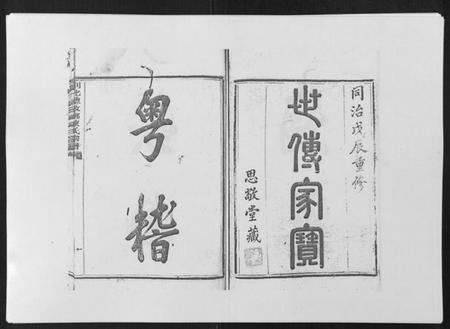 同治戊辰重修
世傳家寶
思敬堂藏
粤稽